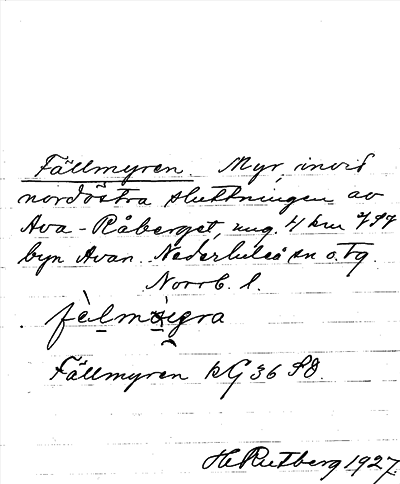 Fällmyren. Myr, invid
nordöstra sluttningen av
Ava-Råberget, ung. 4 km
byn Avan. Nederluleå sn o. tg.
Norrb. l.
Fällmyren kG 36 SO.
H Rutberg 1927.